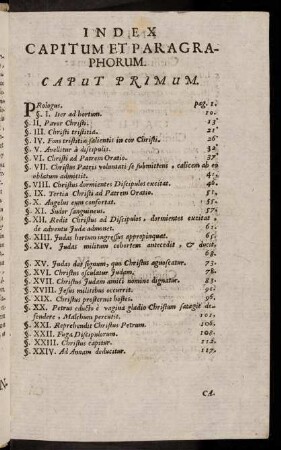 INDEX
CAPITUM ET PARAGRA-
PHORUM.
CAPUT PRIMUM.
PRologus. pag. 1.
§. I. Iter ad hortum. 10.
§. II. Pavor Christi. 13.
§. III. Christi tristitia. 21.
§. IV. Fons tristitiæ salientis in cor Christi. 26.
§. V. Avellitur à discipulis. 32.
§. VI. Christi ad Patrem Oratio. 37.
§. VII. Christus Patris voluntati se submittens, calicem ab eo
oblatum admittit.
§. VIII. Christus dormientes Discipulos excitat. 46.
§. IX. Tertia Christi ad Patrem Oratio. 51.
§. X. Angelus eum confortat. 55.
§. XI. Sudor sanguineus. 57.
§. XII. Redit Christus ad Discipulos, dormientes excitat,
de adventu Judæ admonet. 61.
§. XIII. Judas hortum ingressus appropinquat. 65.
§. XIV. Judas militum cohortem antecedit, & ducit.
68.
§. XV. Judas dat signum, quo Christus agnoscatur. 73.
§. XVI. Christus osculatur Judam. 78.
§. XVII. Christus Judam amici nomine dignatur. 83.
§. XVIII. Jesus militibus occurrit. 92.
§. XIX. Christus prosternit hostes. 96.
§. XX. Petrus educto è vagina gladio Christum satagit de-
fendere, Malchum percutit. 101.
§. XXI. Reprehendit Christus Petrum. 106.
§. XXII. Fuga Discipulorum. 108.
§. XXIII. Christus capitur. 112.
§. XXIV. Ad Annam deducitur. 117.
CA.